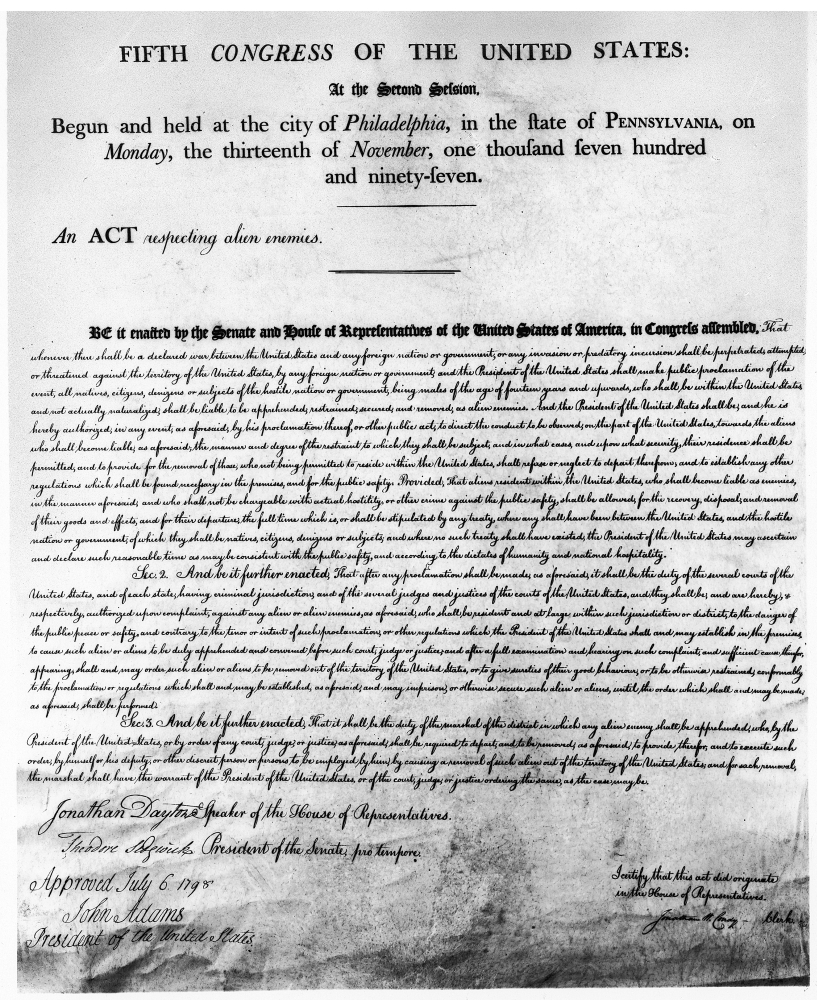 FIFTH CONGRESS OF THE UNITED STATES:
At the Second Seſſion,
Begun and held at the city of Philadelphia, in the ſtate of PENNSYLVANIA, on
Monday, the thirteenth of November, one thouſand ſeven hundred
and ninety-ſeven.
An ACT respecting alien enemies.
BE it enacted by the Senate and Houſe of Repreſentatives of the United States of America, in Congreſs aſſembled, That
whenever there shall be a declared war between the United States and any foreign nation or government, or any invasion or predatory incursion shall be perpetrated, attempted,
or threatened against the territory of the United States, by any foreign nation or government, and the President of the United States shall make public proclamation of the
event, all natives, citizens, denizens or subjects of the hostile nation or government, being males of the age of fourteen years and upwards, who shall be within the United States,
and not actually naturalized, shall be liable to be apprehended, restrained, secured and removed, as alien enemies. And the President of the United States shall be, and he is
hereby authorized, in any event, as aforesaid, by his proclamation thereof, or other public act, to direct the conduct to be observed, on the part of the United States, towards the aliens
who shall become liable, as aforesaid; the manner and degree of the restraint to which they shall be subject, and in what cases, and upon what security, their residence shall be
permitted, and to provide for the removal of those, who not being permitted to reside within the United States, shall refuse or neglect to depart therefrom; and to establish any other
regulations which shall be found necessary in the premises, and for the public safety: Provided, That aliens resident within the United States, who shall become liable as enemies,
in the manner aforesaid, and who shall not be chargeable with actual hostility, or other crime against the public safety, shall be allowed, for the recovery, disposal, and removal
of their goods and effects, and for their departure, the full time which is, or shall be stipulated by any treaty, where any shall have been between the United States, and the hostile
nation or government, of which they shall be natives, citizens, denizens or subjects; and where no such treaty shall have existed, the President of the United States may ascertain
and declare such reasonable time as may be consistent with the public safety, and according to the dictates of humanity and national hospitality.
Sec. 2. And be it further enacted, That after any proclamation shall be made, as aforesaid, it shall be the duty of the several courts of the
United States, and of each state, having criminal jurisdiction, and of the several judges and justices of the courts of the United States, and they shall be, and are hereby, &
respectively, authorized upon complaint, against any alien or alien enemies, as aforesaid, who shall be resident and at large within such jurisdiction or district, to the danger of
the public peace or safety, and contrary to the tenor or intent of such proclamation, or other regulations which the President of the United States shall and may establish in the premises,
to cause such alien or aliens to be duly apprehended and convened before such court, judge or justice; and after a full examination and hearing on such complaint, and sufficient cause therefor,
appearing, shall and may order such alien or aliens to be removed out of the territory of the United States, or to give sureties of their good behaviour, or to be otherwise restrained, conformably
to the proclamation or regulations which shall and may be established, as aforesaid, and may imprison, or otherwise secure such alien or aliens, until the order which shall and may be made,
as aforesaid, shall be performed.
Sec. 3. And be it further enacted, That it shall be the duty of the marshal of the district in which any alien enemy shall be apprehended, who, by the
President of the United States, or by order of any court, judge, or justice, as aforesaid, shall be required to depart, and to be removed, as aforesaid, to provide, therefor, and to execute such
order, by himself or his deputy, or other discreet person or persons to be employed by him, by causing a removal of such alien out of the territory of the United States; and for such removal,
the marshal shall have the warrant of the President of the United States, or of the court, judge, or justice ordering the same, as the case may be.
Jonathan Dayton Speaker of the House of Representatives.
Theodore Sedgwick President of the Senate, pro tempore.
Approved July 6. 1798
John Adams
President of the United States.
I certify that this act did originate
in the House of Representatives.
Jonathan W. Condy - Clerk.